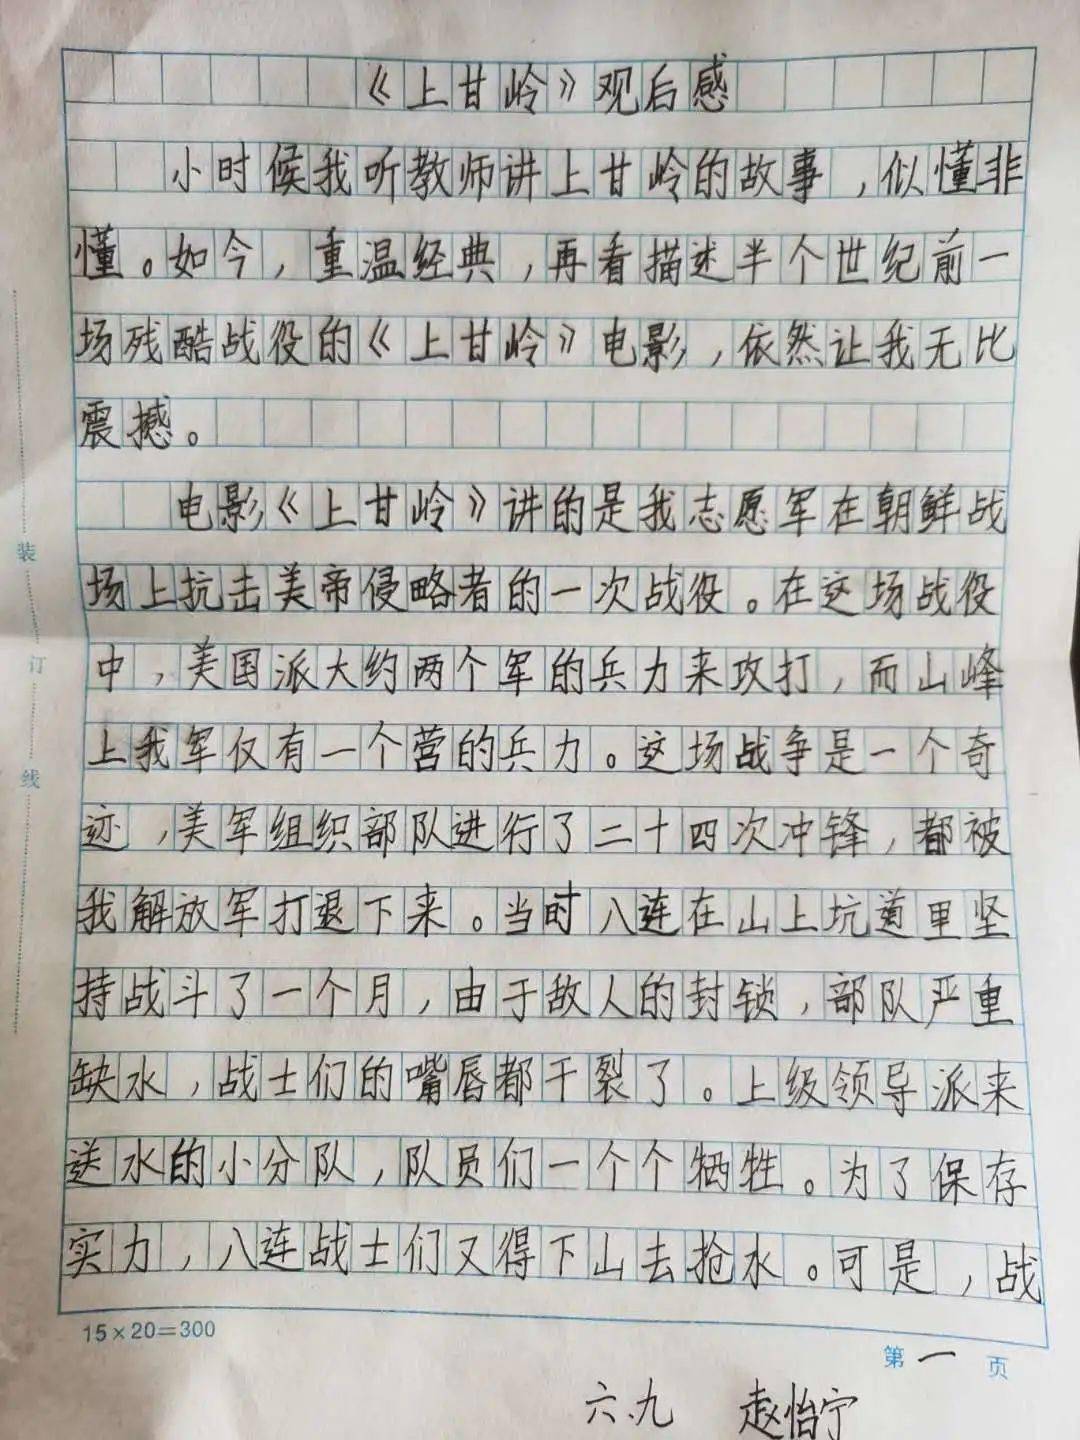 《上甘岭》观后感
小时候我听教师讲上甘岭的故事，似懂非
懂。如今，重温经典，再看描述半个世纪前一
场残酷战役的《上甘岭》电影，依然让我无比
震撼。
电影《上甘岭》讲的是我志愿军在朝鲜战
场上抗击美帝侵略者的一次战役。在这场战役
中，美国派大约两个军的兵力来攻打，而山峰
上我军仅有一个营的兵力。这场战争是一个奇
迹，美军组织部队进行了二十四次冲锋，都被
我解放军打退下来。当时八连在山上坑道里坚
持战斗了一个月，由于敌人的封锁，部队严重
缺水，战士们的嘴唇都干裂了。上级领导派来
送水的小分队，队员们一个个牺牲。为了保存
实力，八连战士们又得下山去抢水。可是，战
装
订
线
15×20=300
第一页
六.九 赵怡宁